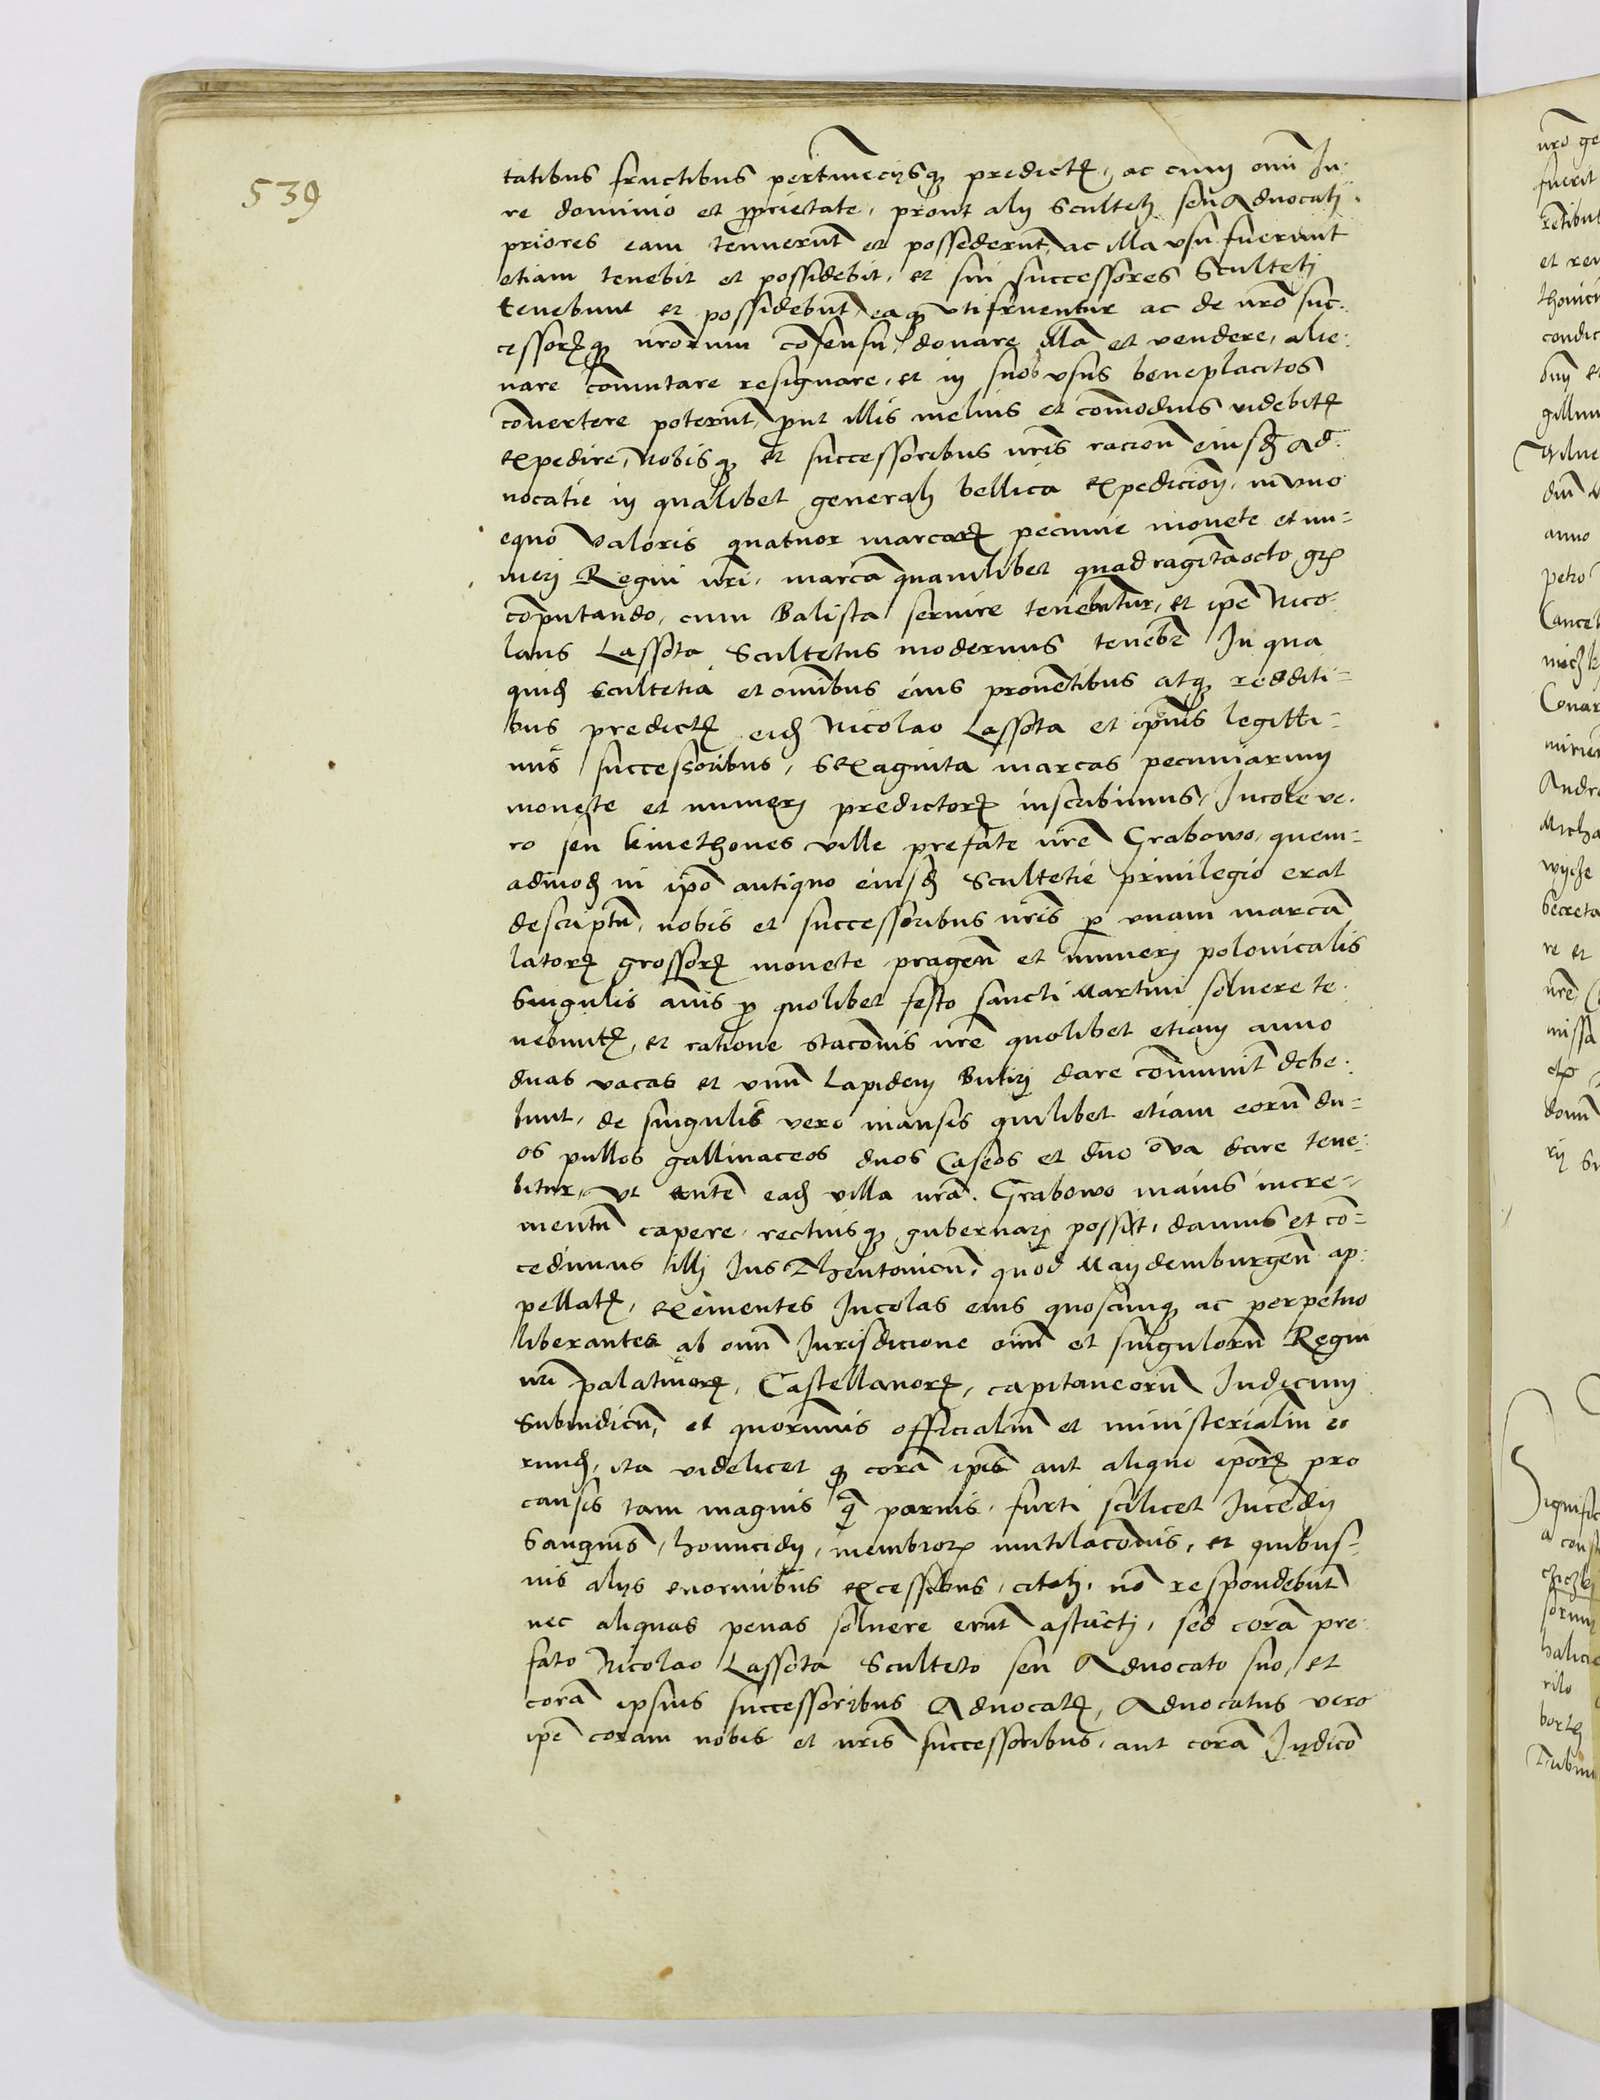 539
tatibus fructibus pertinecijsq predictꝭ, ac cum om̄i Ju
re dominio et ꝓprietate, prout alij Sculteti seu Aduocati
priores eam tenuerūt et possederūt, ac illa vsu fuerunt
etiam tenebit et possidebit, et sui successores Sculteti
tenebunt et possidebūt, eaqꝫ vtifruentur ac de nr̄o suc
cessorꝭqꝫ nr̄orum cōsensu, donare illā et vendere, alie
nare cōmutare resignare, et in suos vsus beneplacitos
cōuertere poterūt, ꝓut illis melius et cōmodius videbitꝭ
expedire, Nobisqꝫ et successoribus nr̄is racion̄ eiusdꝫ Ad
uocatie in qualibet generali bellica expedicion̄, in vno
equo valoris quatuor marcarꝭ pecunie monete et nu-
meri Regni nr̄i, marcā quamlibet quadragītaocto gꝛꝭ
cōputando, cum Balista seruire tenebatur, et ip̄e Nico
laus Lassota Scultetus modernus tenebr̄ In qua
quidꝫ scultetia et om̄ibus eius prouētibus atqꝫ redditi-
bus predictꝭ eidꝫ Nicolao Lassota et ip̄ius legitti-
mis successoribus, sexaginta marcas pecuniarum
monete et numeri predictorꝭ inscribimus, Incole ve
ro seu kmethones ville prefate nr̄e Grabowo, quem-
admodꝫ in ip̄o antiquo eiusdꝫ Scultetie priuilegio erat
descriptū, nobis et successoribus nr̄is ꝑ vnam marcā
latorꝭ grossorꝭ monete pragen̄ et numeri polonicalis
Singulis an̄is ꝓ quolibet festo sancti Martini soluere te
nebuntꝭ, et ratione stacōnis nr̄e quolibet etiam anno
duas vacas et vnū Lapidem Butiri dare cōmunit̄ debe
bunt, de singulis vero mansis quilibet etiam eorū du-
os pullos gallinaceos duos Caseos et duo oua dare tene
bitur, vt autē eadꝫ villa nr̄a Grabowo maius incre-
mentū capere, rectiusqꝫ gubernari possit, damus et cō-
cedimus illi Jus Theutonicū, quod Maijdemburgen̄ ap
pellatꝭ, eximentes Incolas eius quoscunqꝫ ac perpetuo
liberantes ab om̄i Jurisdicione om̄iū et singulorū Regni
nr̄i palatinorꝭ, Castellanorꝭ, capitaneorū Judicum
Subiudicū, et quorumuis officialiū et ministerialiū eo
rundꝫ, ita videlicet qꝫ corā ip̄is aut aliquo ip̄orꝭ pro
causis tam magnis q̄ paruis, furti scilicet Incēdij
Sanguinis, homicidij, membrorꝭ mutilacōnis, et quibus-
uis alijs enormibus excessibus, citati, nō respondebūt
nec aliquas penas soluere erūt astricti, sed corā pre
fato Nicolao Lassota Sculteto seu Aduocato suo, et
corā ipsius successoribus Aduocatꝭ, Aduocatus vero
ip̄e coram nobis et nr̄is successoribus, aut corā Judicō